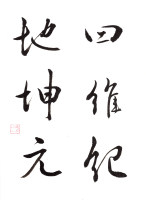 四維紀
地坤元